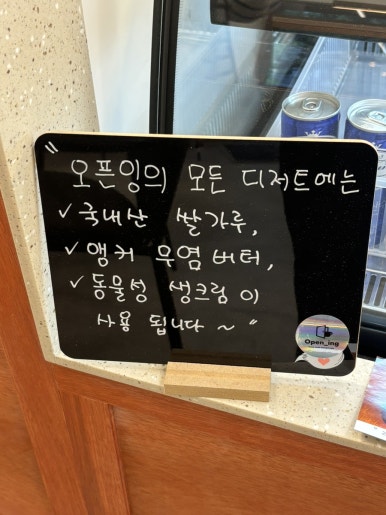 " 오픈잉의 모든 디저트에는
✓ 국내산 쌀가루,
✓ 앵커 무염버터,
✓ 동물성 생크림이
사용 됩니다 ~ "
Open_ing